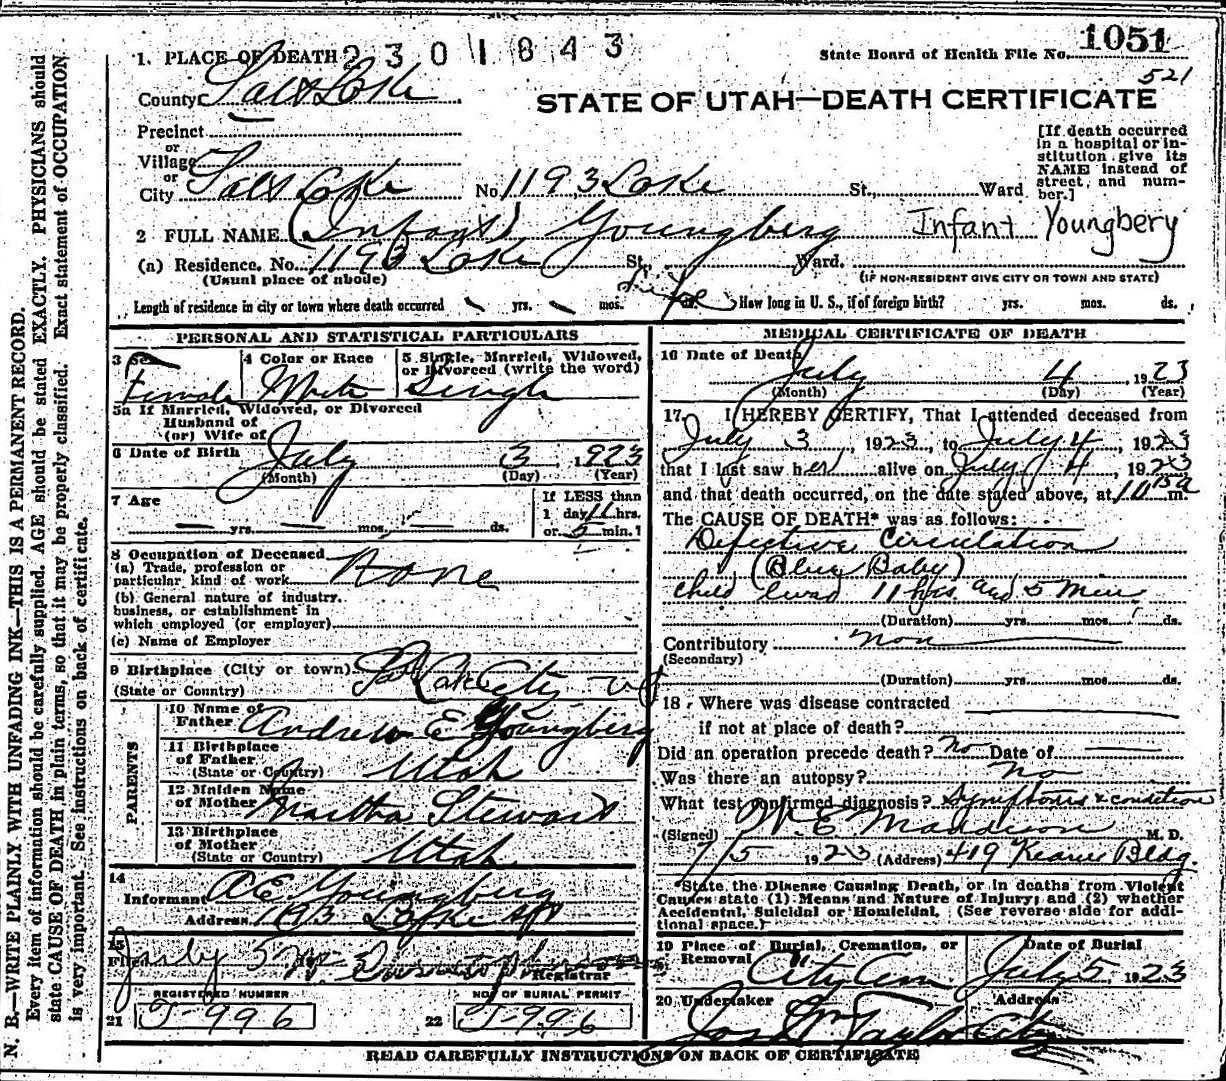 1. PLACE OF DEATH 2301843
State Board of Health File No. 1051
521
County Salt Lake
STATE OF UTAH—DEATH CERTIFICATE
Precinct
or
Village
or
City Salt Lake No. 1193 Lake St., Ward
[If death occurred
in a hospital or in-
stitution give its
NAME instead of
street, and num-
ber.]
2 FULL NAME (Infant) Youngberg Infant Youngbery
(a) Residence. No. 1193 Lake St. Ward.
(Usual place of abode) (IF NON-RESIDENT GIVE CITY OR TOWN AND STATE)
Length of residence in city or town where death occurred yrs. mos. ds. How long in U. S., if of foreign birth? yrs. mos. ds.
PERSONAL AND STATISTICAL PARTICULARS
3 Sex
Female
4 Color or Race
White
5 Single, Married, Widowed,
or Divorced (write the word)
Single
5a If Married, Widowed, or Divorced
Husband of
(or) Wife of
6 Date of Birth July 3 1923
(Month) (Day) (Year)
7 Age
— yrs. — mos. — ds.
If LESS than
1 day 11 hrs.
or 5 min.?
8 Occupation of Deceased
(a) Trade, profession or
particular kind of work None
(b) General nature of industry,
business, or establishment in
which employed (or employer)
(c) Name of Employer
9 Birthplace (City or town) Salt Lake City Ut
(State or Country)
PARENTS
10 Name of
Father Andrew E Youngberg
11 Birthplace
of Father
(State or Country) Utah
12 Maiden Name
of Mother Martha Stewart
13 Birthplace
of Mother
(State or Country) Utah
14
Informant A E Youngberg
Address 1193 Lake
15
Filed July 5
Registrar
REGISTERED NUMBER
21 J-996
NO. OF BURIAL PERMIT
22 J-996
MEDICAL CERTIFICATE OF DEATH
16 Date of Death
July 4 1923
(Month) (Day) (Year)
17 I HEREBY CERTIFY, That I attended deceased from
July 3, 1923, to July 4, 1923
that I last saw her alive on July 4, 1923
and that death occurred, on the date stated above, at 10 15 a m.
The CAUSE OF DEATH* was as follows:
Defective Circulation
(Blue Baby)
child lived 11 hrs and 5 min
(Duration) yrs. mos. ds.
Contributory non
(Secondary)
(Duration) yrs. mos. ds.
18. Where was disease contracted
if not at place of death?
Did an operation precede death? No Date of
Was there an autopsy? No
What test confirmed diagnosis? Symptoms & condition
(Signed) W E Maddison M. D.
7/5 1923 (Address) 419 Kearns Bldg.
*State the Disease Causing Death, or in deaths from Violent
Causes state (1) Means and Nature of Injury; and (2) whether
Accidental, Suicidal or Homicidal. (See reverse side for addi-
tional space.)
19 Place of Burial, Cremation, or
Removal City Cem
Date of Burial
July 5, 1923
20 Undertaker Address
Jos Wm Taylor City
READ CAREFULLY INSTRUCTIONS ON BACK OF CERTIFICATE
N. B.—WRITE PLAINLY WITH UNFADING INK—THIS IS A PERMANENT RECORD.
Every item of information should be carefully supplied. AGE should be stated EXACTLY. PHYSICIANS should
state CAUSE OF DEATH in plain terms, so that it may be properly classified. Exact statement of OCCUPATION
is very important. See instructions on back of certificate.